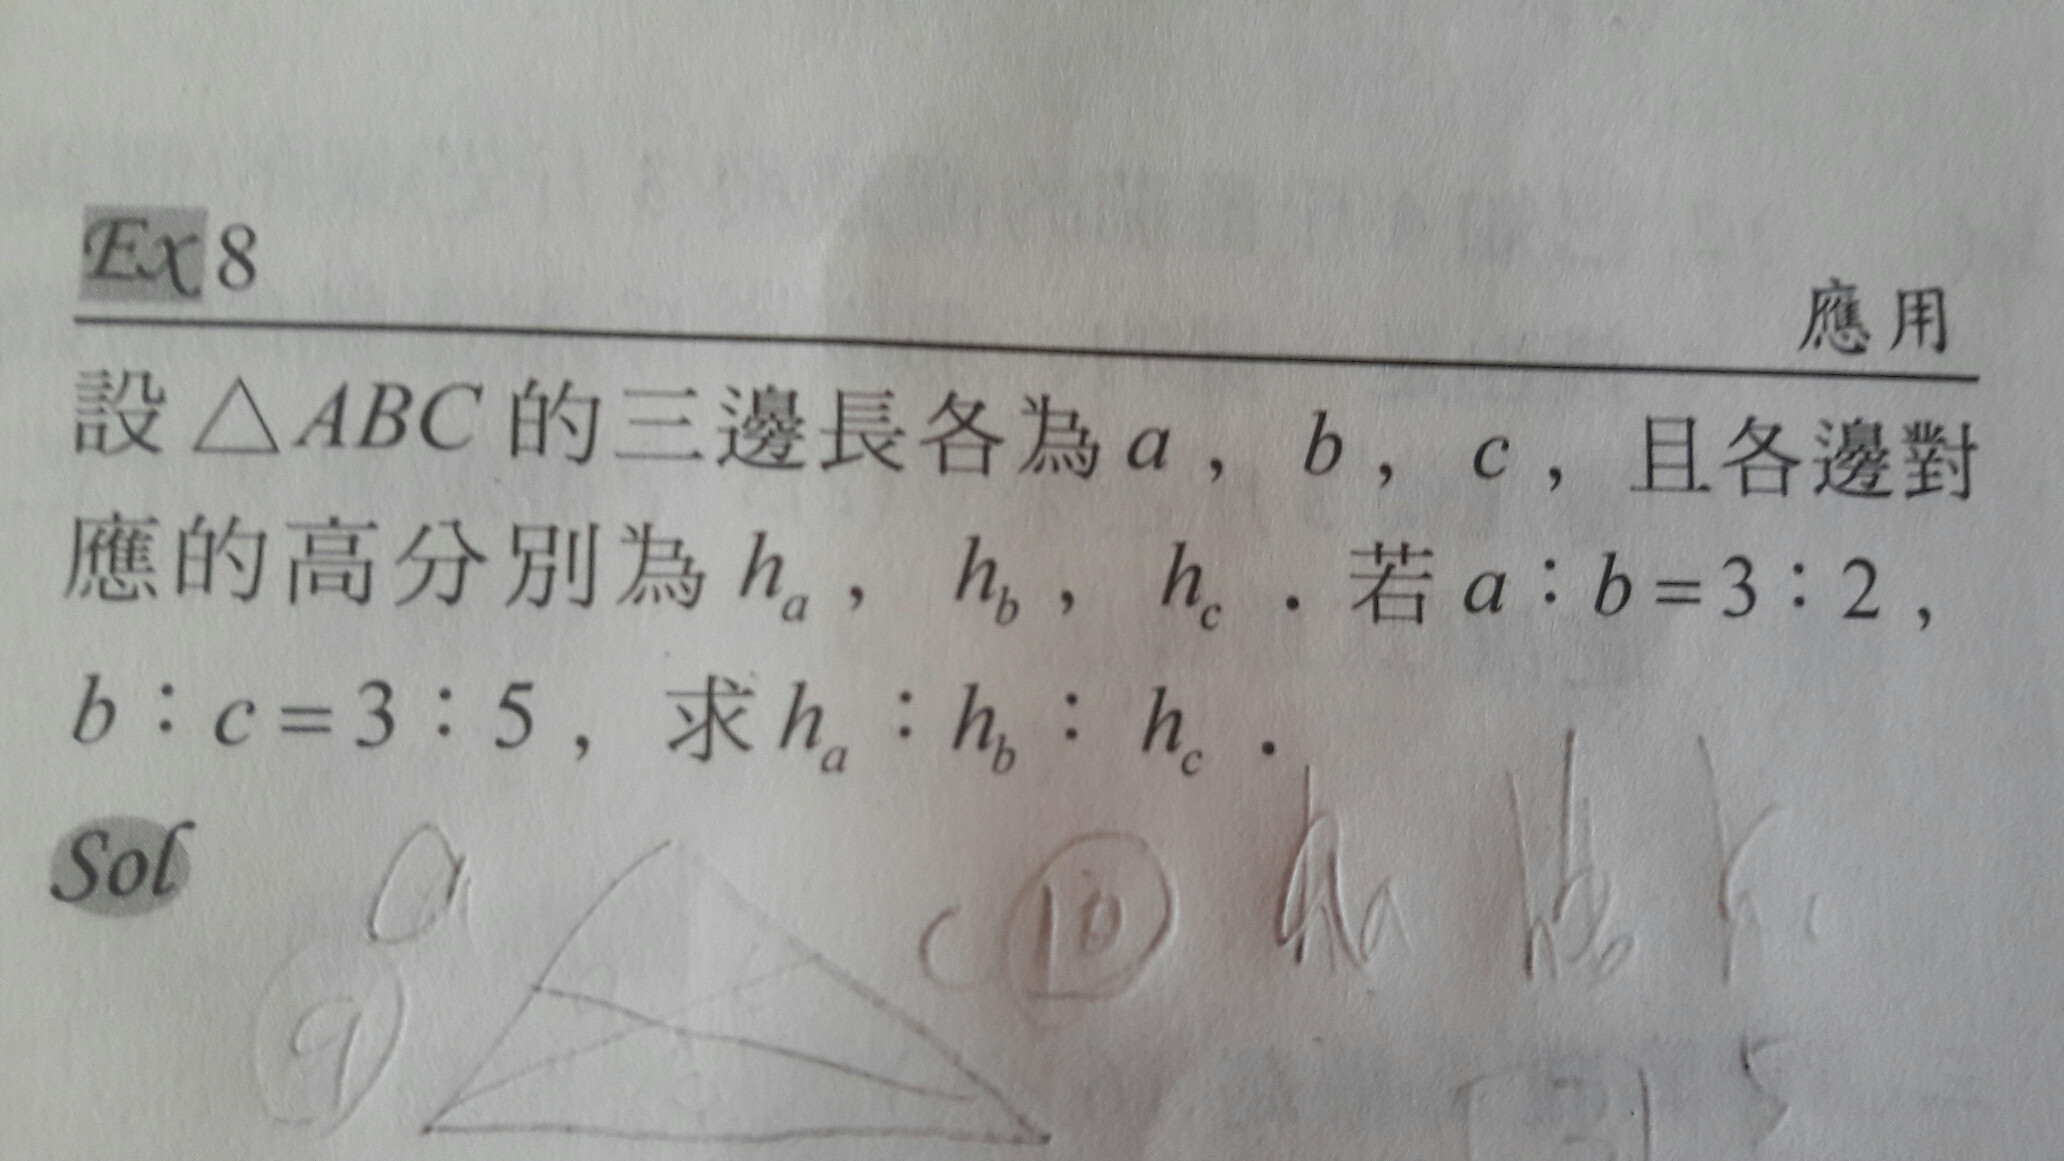 Ex 8
應用
設△ABC的三邊長各為a，b，c，且各邊對
應的高分別為hₐ，h_b，h_c．若a：b=3：2，
b：c=3：5，求hₐ：h_b：h_c．
Sol
a
c 10 ha hb
9